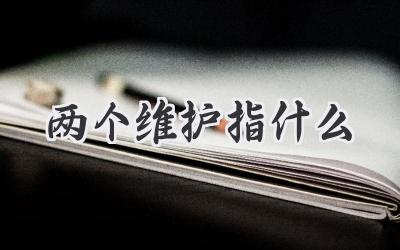 两个维护指什么